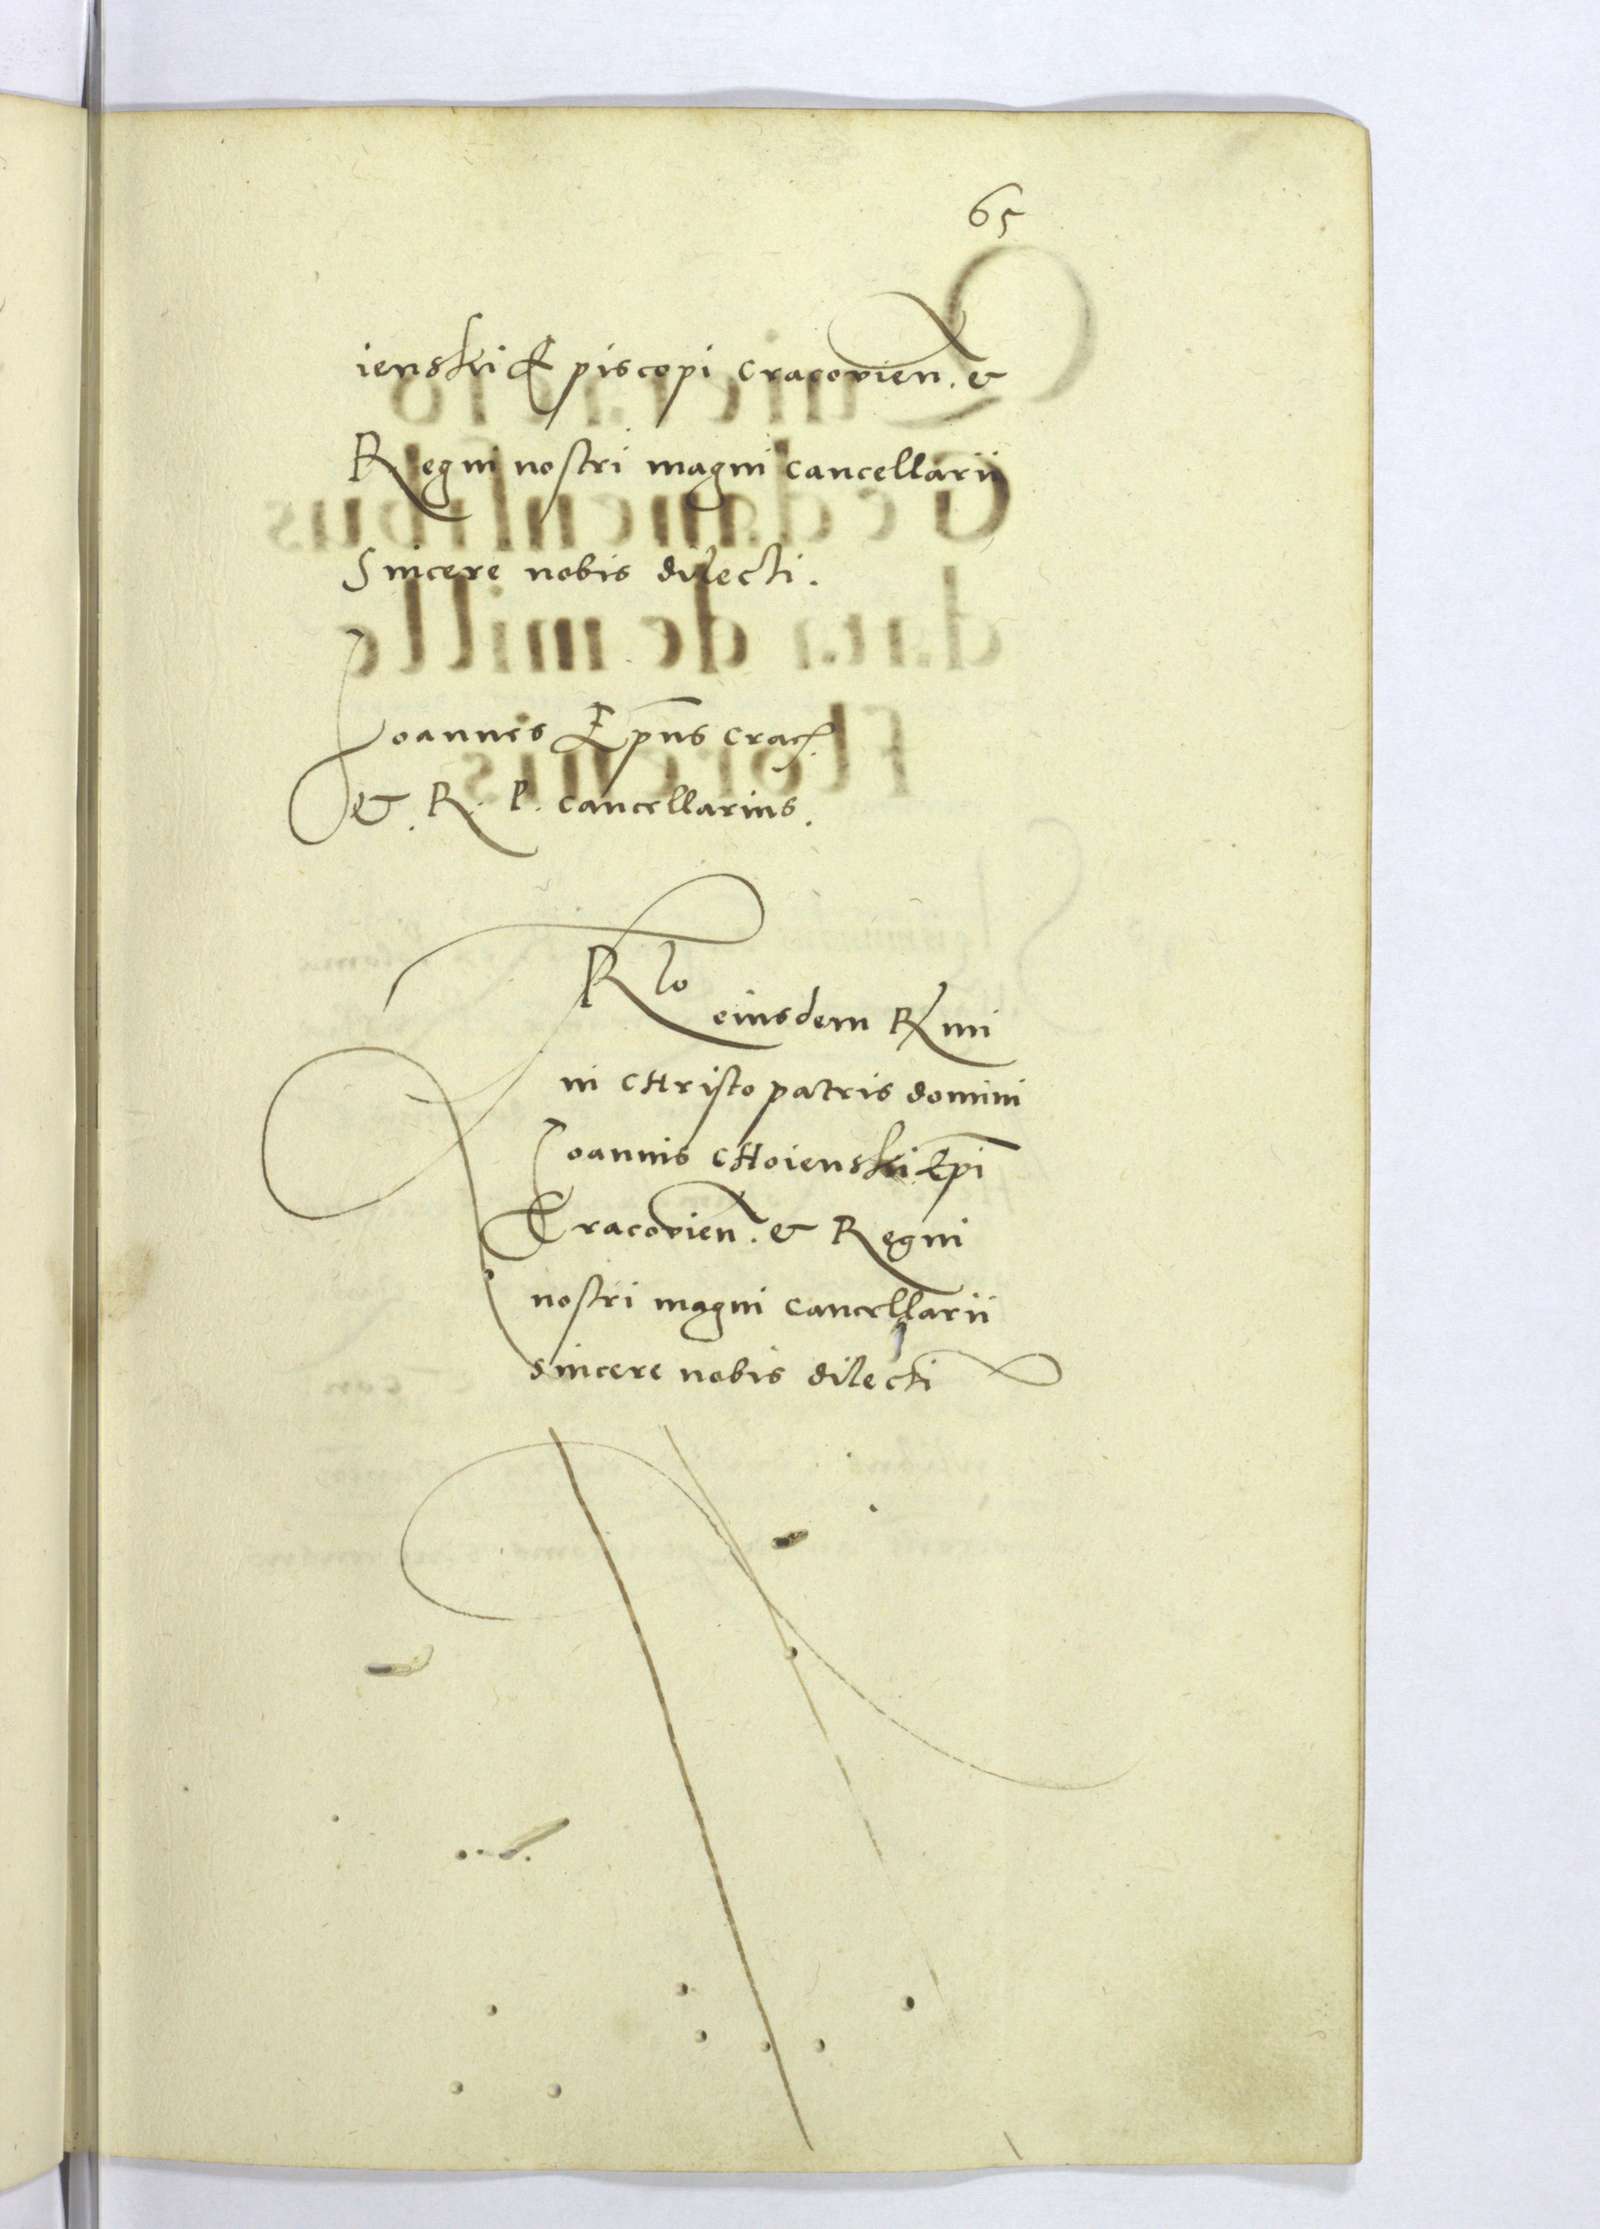 65
ienski Episcopi cracovien. &
Regni nostri magni cancellarii
Sincere nobis dilecti.
Joannes Epus crac.
& R. P. cancellarius.
Rlo
eiusdem Rmi
in christo patris domini
Joannis choienski Epi
Cracovien. & Regni
nostri magni cancellarii
sincere nobis dilecti